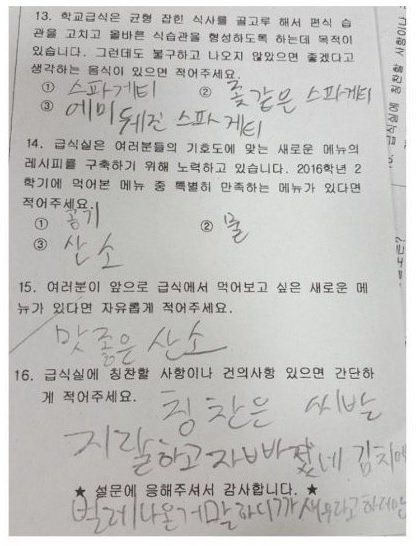 13. 학교급식은 균형 잡힌 식사를 골고루 해서 편식 습
관을 고치고 올바른 식습관을 형성하도록 하는데 목적이
있습니다. 그런데도 불구하고 나오지 않았으면 좋겠다고
생각하는 음식이 있으면 적어주세요.
① 스파게티 ② 좆같은 스파게티
③ 에미 뒤진 스파게티
14. 급식실은 여러분들의 기호도에 맞는 새로운 메뉴의
레시피를 구축하기 위해 노력하고 있습니다. 2016학년 2
학기에 먹어본 메뉴 중 특별히 만족하는 메뉴가 있다면
적어주세요.
① 공기 ② 물
③ 산소
15. 여러분이 앞으로 급식에서 먹어보고 싶은 새로운 메
뉴가 있다면 자유롭게 적어주세요.
맛좋은 산소
16. 급식실에 칭찬할 사항이나 건의사항 있으면 간단하
게 적어주세요.
칭찬은 씨발
지랄하고 자빠졌네 김치에
★ 설문에 응해주셔서 감사합니다. ★
벌레나온거 말하니까 새우라고 하더만
급식실에 칭찬할 사항이나